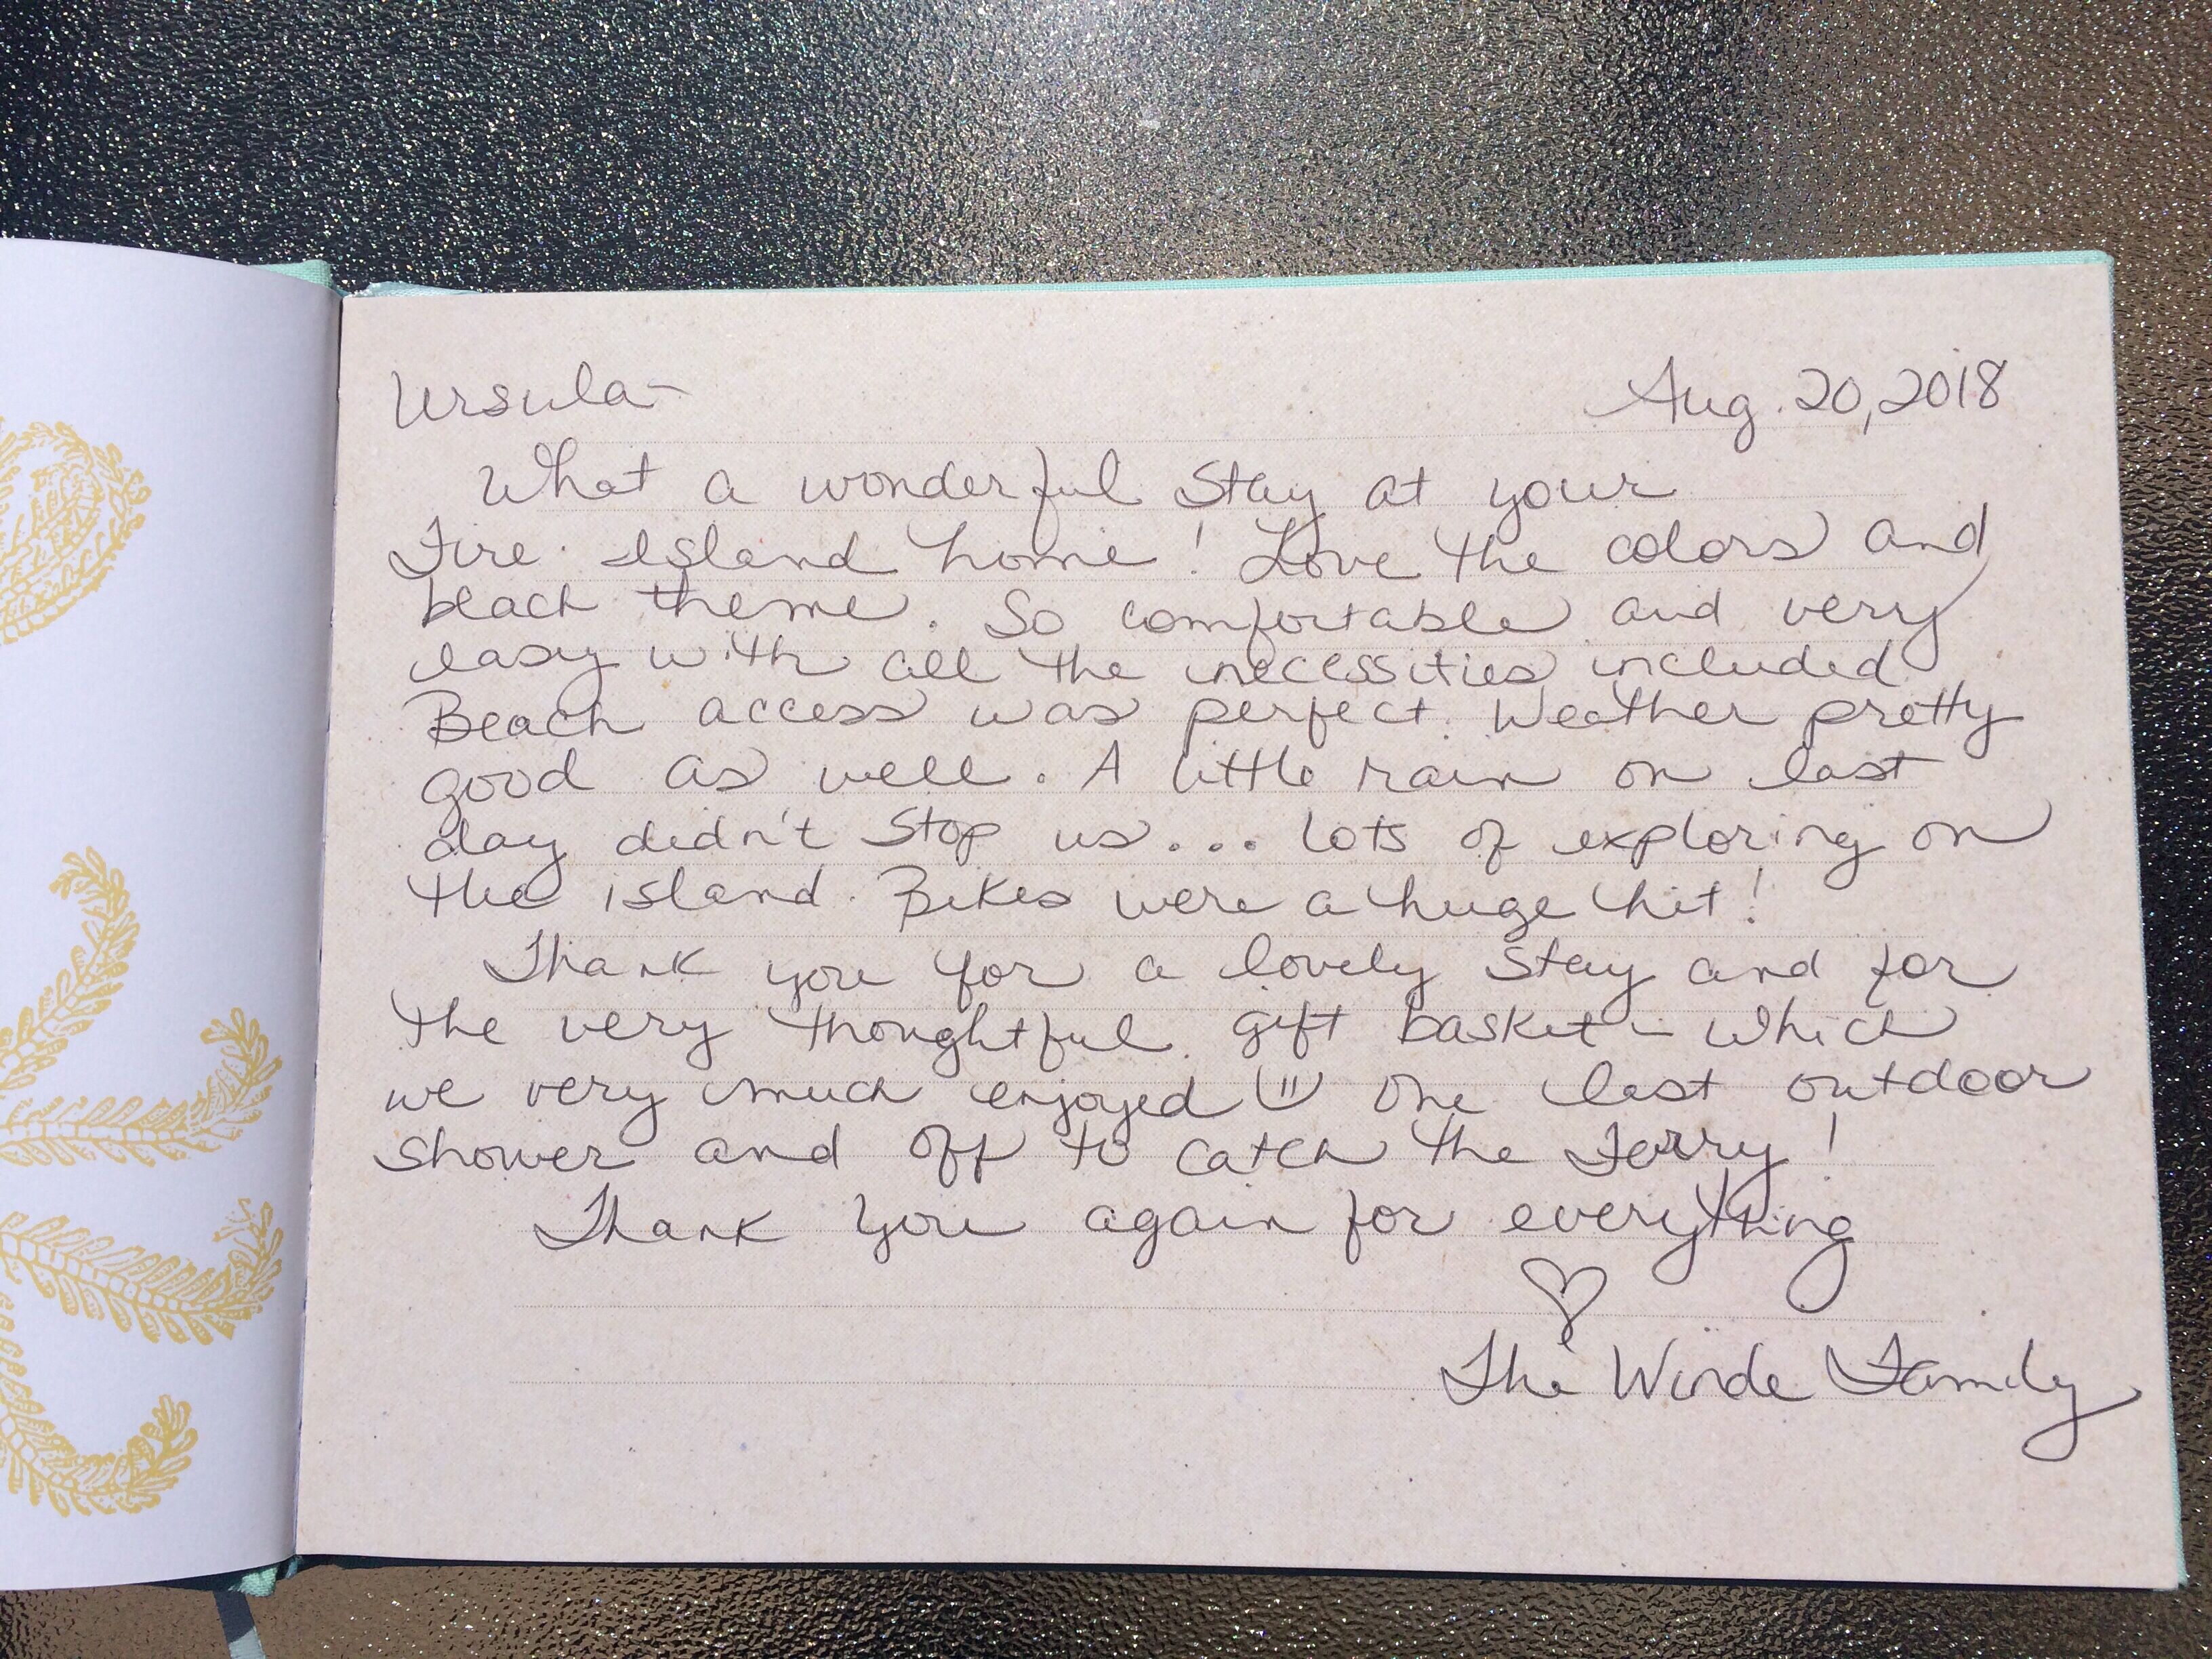 Ursula-
Aug. 20, 2018
What a wonderful stay at your
Fire Island home! Love the colors and
beach theme. So comfortable and very
easy with all the necessities included.
Beach access was perfect. Weather pretty
good as well. A little rain on last
day didn't stop us... lots of exploring on
the island. Bikes were a huge hit!
Thank you for a lovely stay and for
the very thoughtful gift basket - which
we very much enjoyed One last outdoor
shower and off to catch the Ferry!
Thank you again for everything
The Winde Family